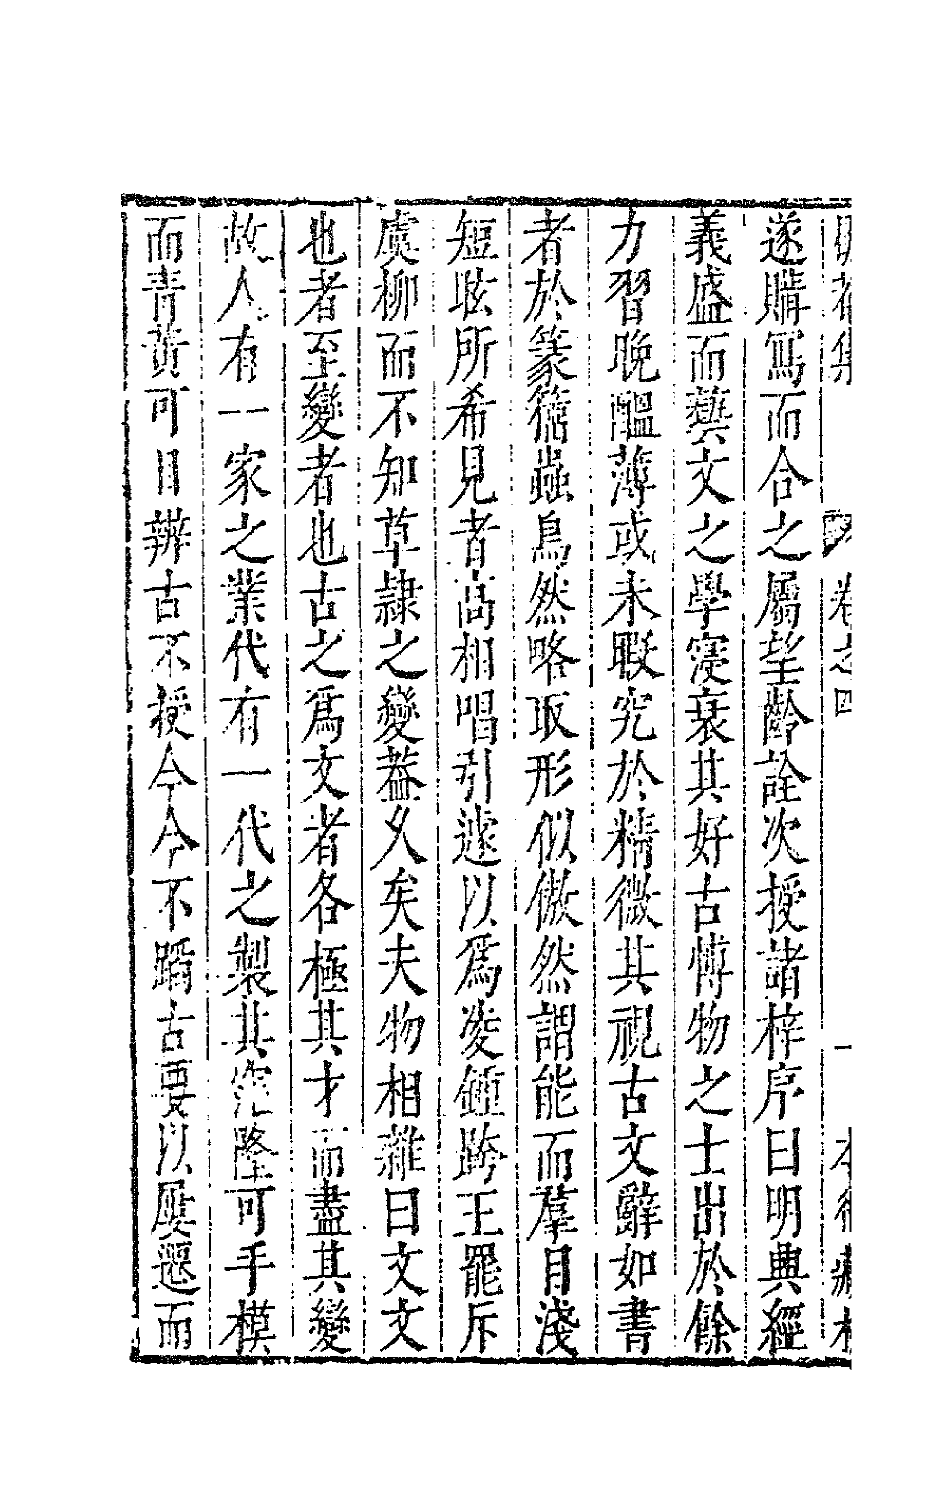 卷之四 一
遂購寫而合之屬望齡詮次授諸梓序曰明興經
義盛而藝文之學寖衰其好古博物之士出於餘
力習晚醞薄或未暇究於精微其視古文辭如書
者於篆籀蟲鳥然略取形似傲然謂能而羣目淺
短眩所希見者高相唱引遽以為凌鍾跨王罷斥
虞柳而不知草隸之變葢乆矣夫物相雜曰文文
也者至變者也古之為文者各極其才而盡其變
故人有一家之業代有一代之製其窊隆可手模
而青黃可目辨古不授今今不蹈古要以屢遷而